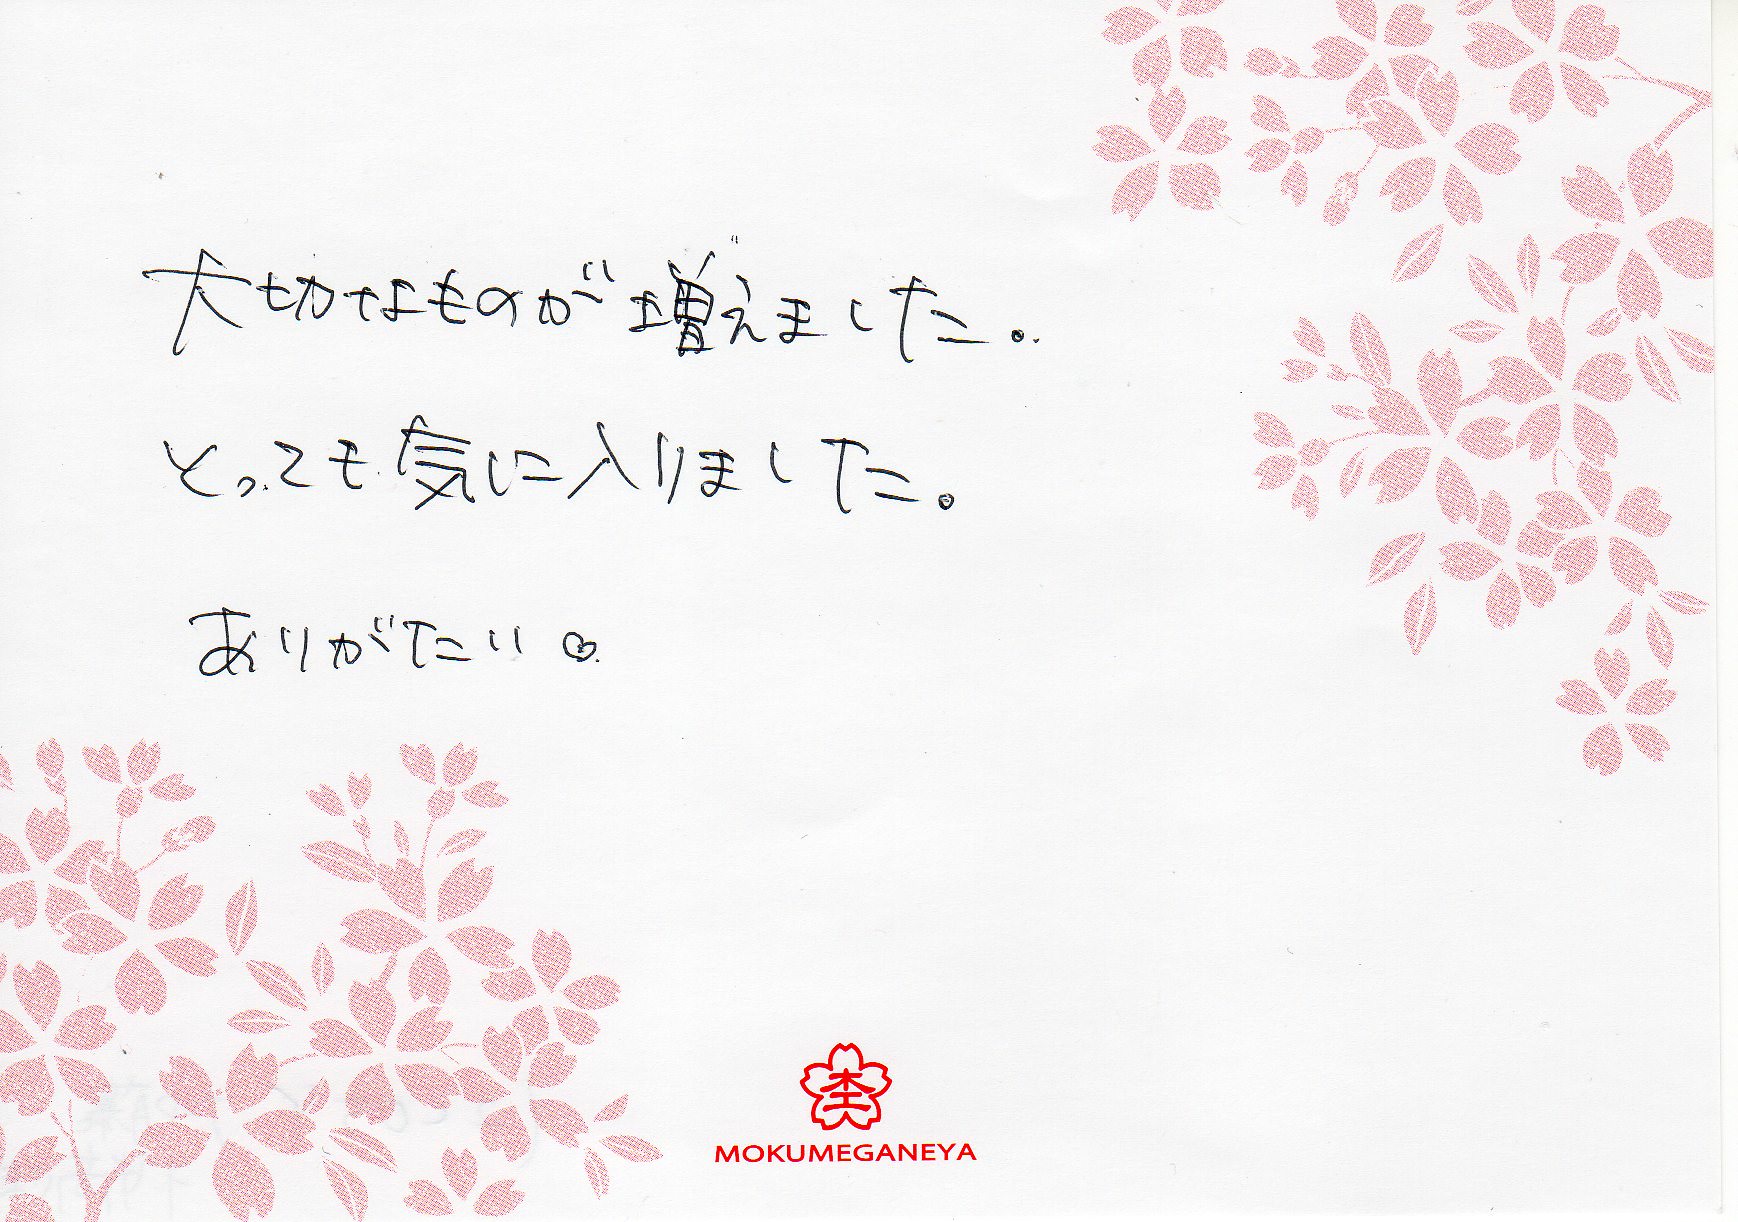 大切なものが増えました。
とっても気に入りました。
ありがたい♡
MOKUMEGANEYA